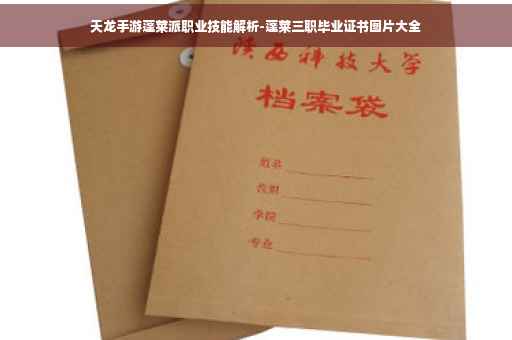 天龙手游蓬莱派职业技能解析-蓬莱三职毕业证书图片大全
陕西科技大学
档案袋
姓名
教职
学院
专业